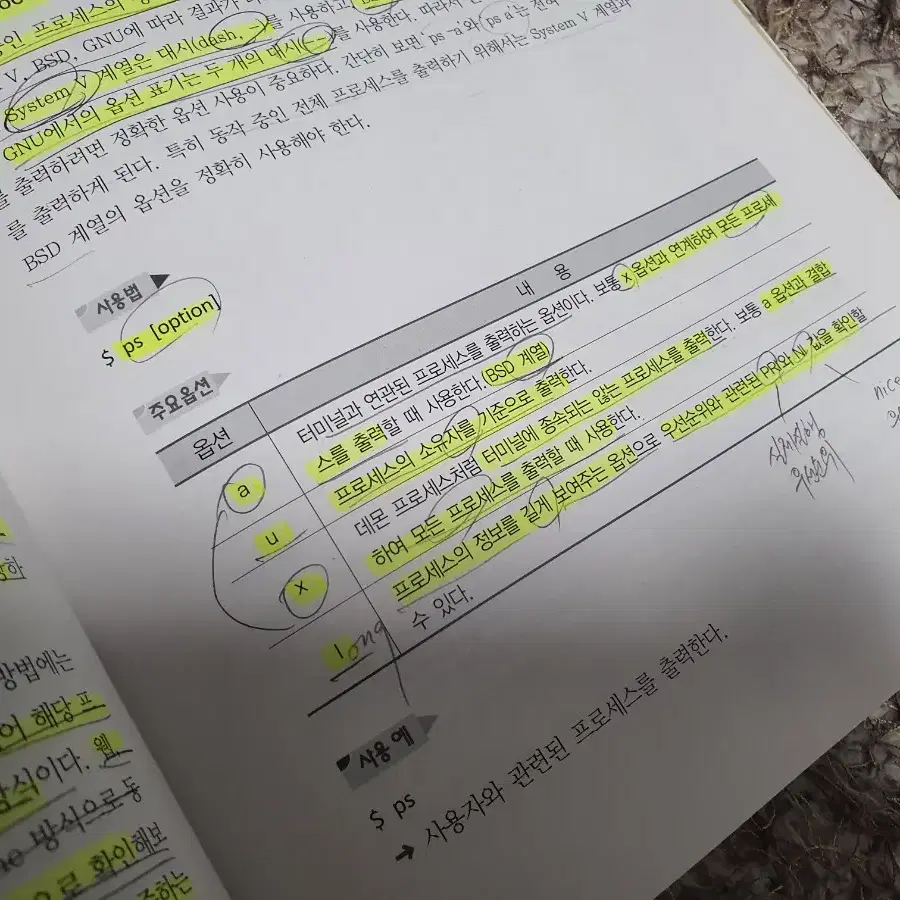 인 프로세스의
V, BSD, GNU에 따라 결과가
System V 계열은 대시(dash, -)를 사용하고
GNU에서의 옵션 표기는 두 개의 대시(--)를 사용한다. 따라서
를 출력하려면 정확한 옵션 사용이 중요하다. 간단히 보면 'ps -a'와 'ps a'는 전혀
를 출력하게 된다. 특히 동작 중인 전체 프로세스를 출력하기 위해서는 System V 계열과
BSD 계열의 옵션을 정확히 사용해야 한다.
사용법
$ ps [option]
주요옵션
옵션 내 용
a 터미널과 연관된 프로세스를 출력하는 옵션이다. 보통 x 옵션과 연계하여 모든 프로세
스를 출력할 때 사용한다. BSD 계열
u 프로세스의 소유자를 기준으로 출력한다.
x 데몬 프로세스처럼 터미널에 종속되는 않는 프로세스를 출력한다. 보통 a 옵션과 결합
하여 모든 프로세스를 출력할 때 사용한다.
long 프로세스의 정보를 길게 보여주는 옵션으로 우선순위와 관련된 PRI와 NI 값을 확인할
수 있다.
실제실행
우선순위
nice
사용 예
$ ps
→ 사용자와 관련된 프로세스를 출력한다.
방법에는
어 해당 프
방식이다. 웹
ne 방식으로 동
으로 확인해보